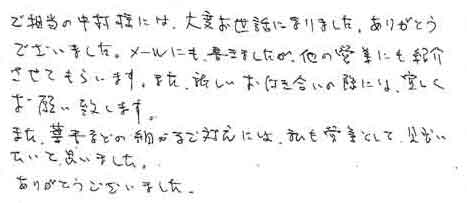 ご担当の中村様には、大変お世話になりました。ありがとう
ございました。メールにも書きましたが、他の営業にも紹介
させてもらいます。また、新しいお付き合いの際には、宜しく
お願い致します。
また、菓子などの細かなご対応には、私も営業として、見習い
たいと思いました。
ありがとうございました。